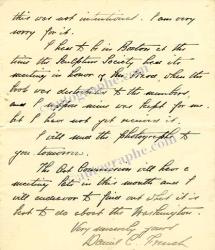 this was not intentional. I am very
sorry for it.
I had to be in Boston at the
time the Sculpture Society had its
meeting in honor of Mr. Ward when the
book was distributed to the members,
and I suppose mine was kept for me.
but I have not yet received it.
I will send the photographs to
you tomorrow.
The Art Commission will have a
meeting late in this month and I
will endeavor to find out what it is
best to do about the Washington.
Very sincerely yours
Daniel C. French